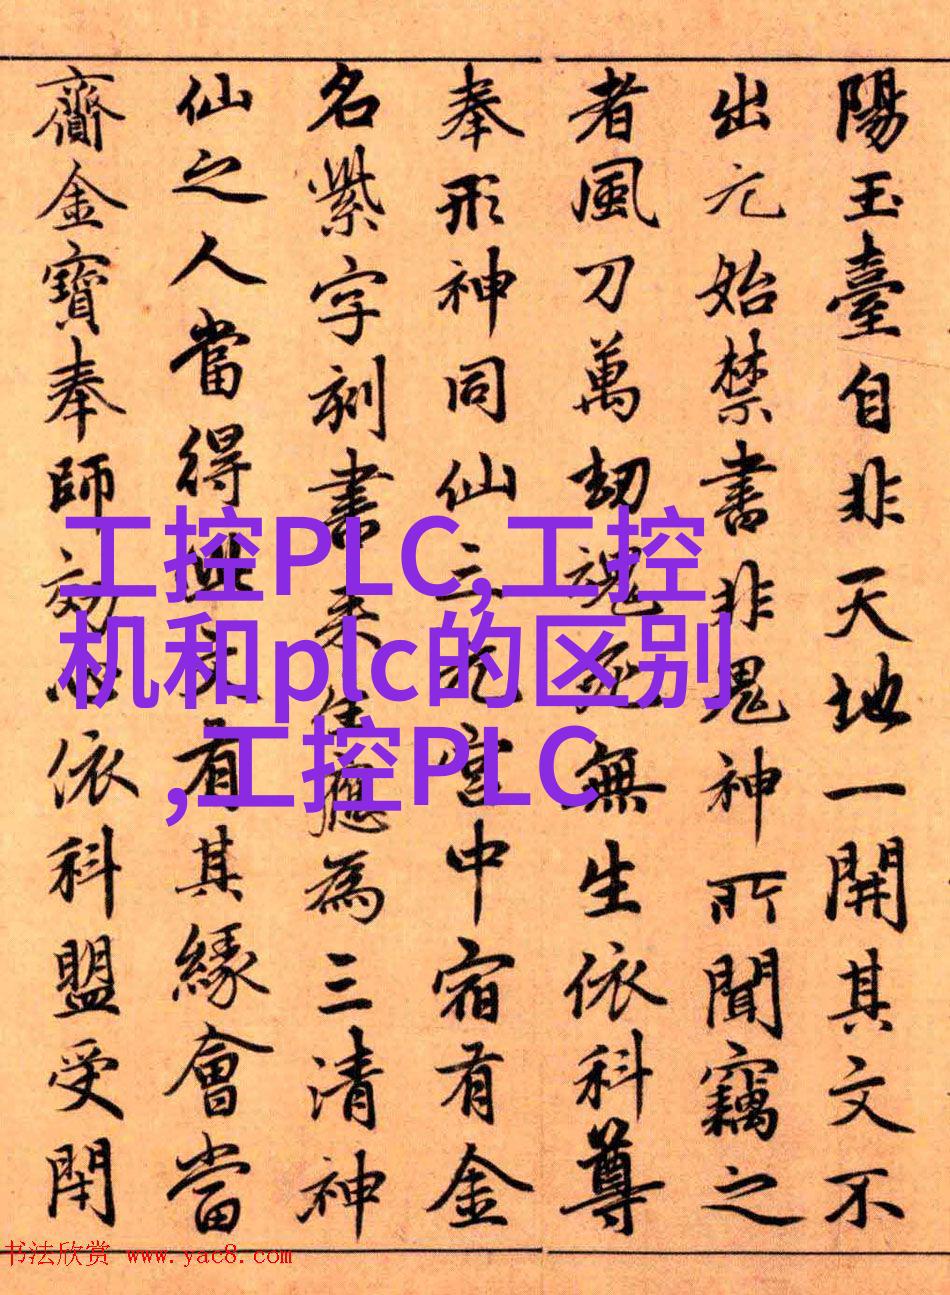 陽玉臺自非天地一開其文不
出元始禁書非鬼神所聞竊之
者風刀萬劫魂死無生依科尊
奉形神同仙三元宮中宿有金
名紫字刻書來生應為三清神
仙之人當得此文有其緣會當
齎金寶奉師効心依科盟受閇
工控PLC,工控
机和plc的区别
,工控PLC
书法欣赏 www.yac8.com